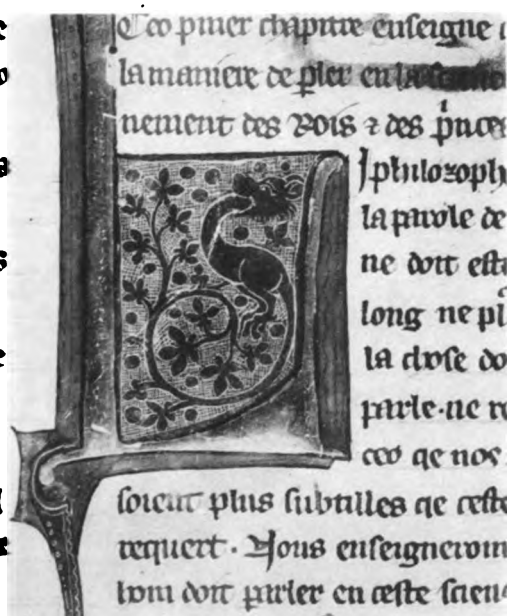 Ceo pͥmer chapitre enseigne
la maniere de ꝑler en la
nement des Rois ⁊ des pͥnces
L I philozoph
la parole de
ne doit este
long ne pl
la chose do
parle·ne re
ceo qe nos
soient plus subtilles qe ceste
requert· Nous enseigneroun
hom doit parler en ceste scien